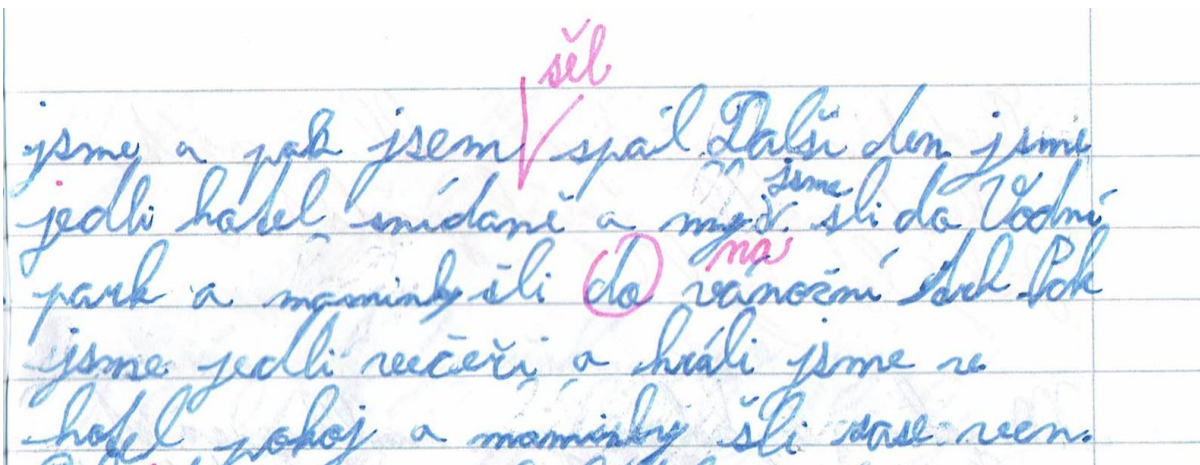 šel
jsme a pak jsem spal Další den jsme
jsme
jedli hotel snídaně a my šli do Vodní
na
park a maminky šli do vánoční trh Pak
jsme jedli večeři a hráli jsme v
hotel pokoj a maminky šli zase ven.